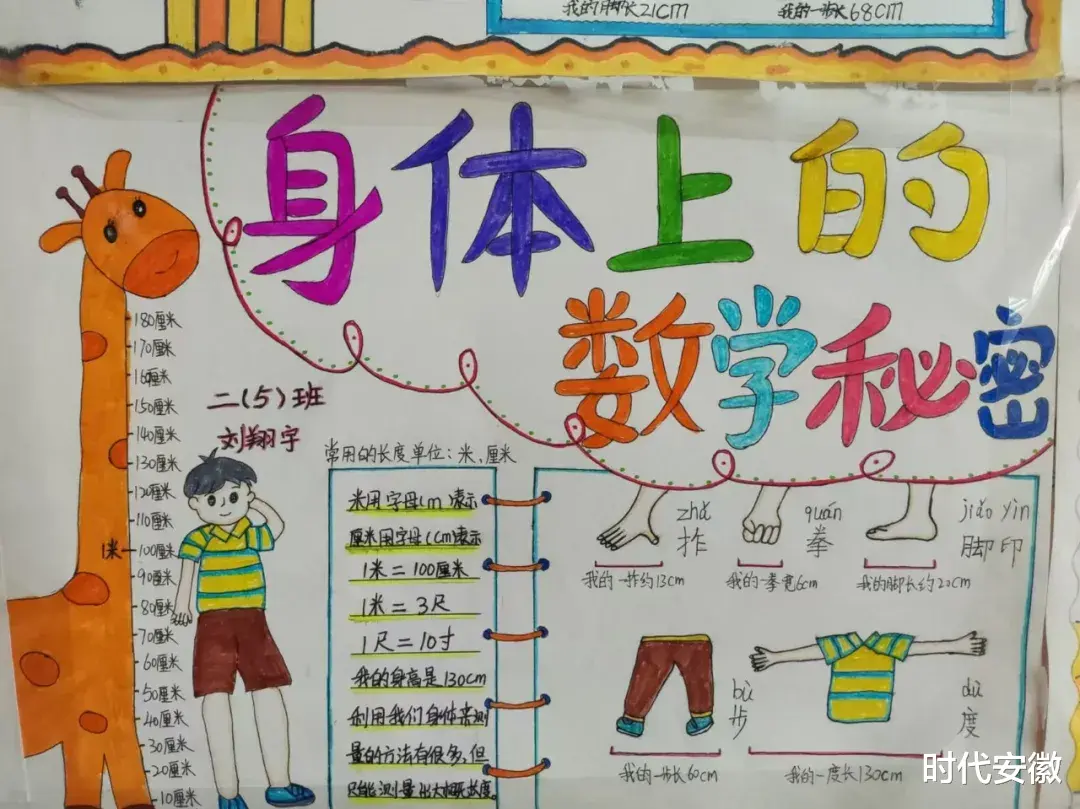 我的脚长21cm
我的一步长68cm
身体上的
数学秘密
180厘米
170厘米
16厘米
150厘米
140厘米
130厘米
120厘米
110厘米
1米
100厘米
90厘米
80厘米
70厘米
60厘米
50厘米
40厘米
30厘米
20厘米
10厘米
二(5)班
刘翔宇
常用的长度单位:米、厘米
米用字母(m)表示
厘米用字母(cm)表示
1米=100厘米
1米=3尺
1尺=10寸
我的身高是130cm
利用我们身体来测
量的方法有很多,但
只能测量出大概长度。
zhǎ
拃
我的一拃约13cm
quán
拳
我的一拳宽6cm
jiǎo yìn
脚印
我的脚长约20cm
bù
步
我的一步长60cm
dù
度
我的一度长130cm
时代安徽